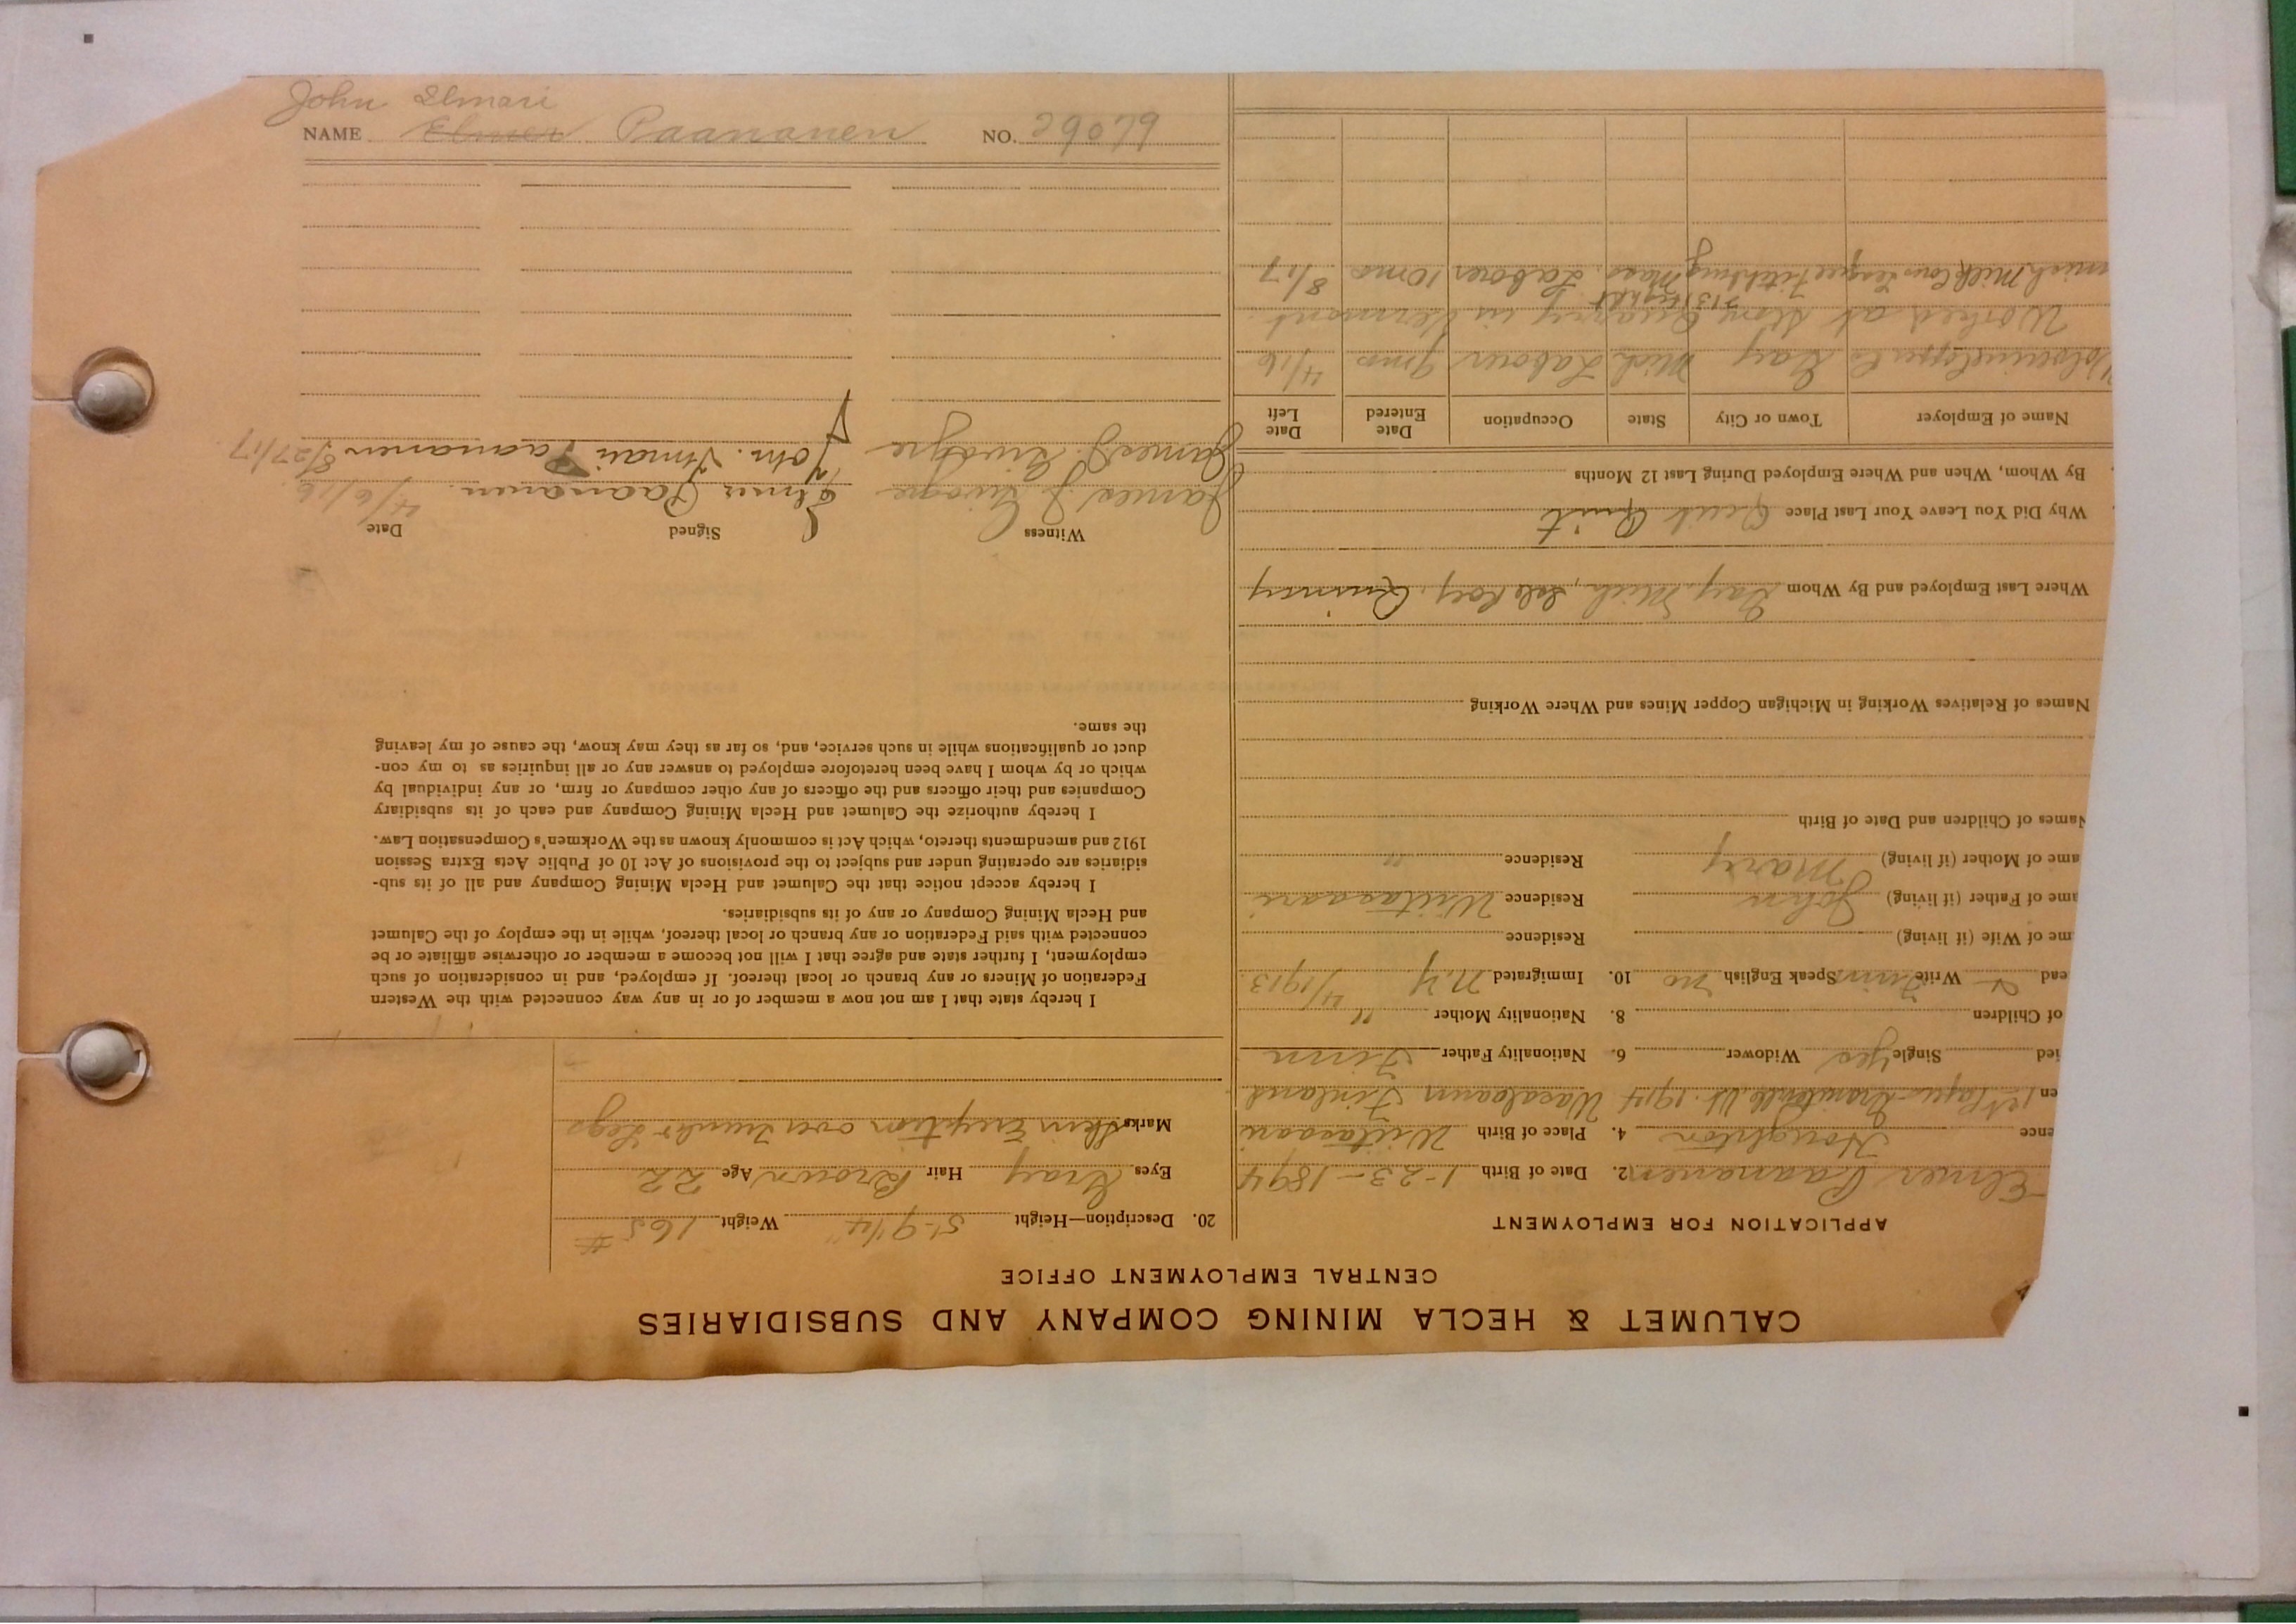 John Ilmari
NAME Elmer Paananen NO. 29079
CALUMET & HECLA MINING COMPANY AND SUBSIDIARIES
CENTRAL EMPLOYMENT OFFICE
APPLICATION FOR EMPLOYMENT
Elmer Paananen 2. Date of Birth 1-23-1894
ence Houghton 4. Place of Birth Wiitasaari
en 1st Paper Vt. 1914 Finland
ied Single yes Widower 6. Nationality Father Finn
of Children 8. Nationality Mother "
ead Write Finn Speak English no 10. Immigrated N.Y 4/1913
me of Wife (if living) Residence
ame of Father (if living) John Residence Wiitasaari
ame of Mother (if living) Mary Residence "
Names of Children and Date of Birth
Names of Relatives Working in Michigan Copper Mines and Where Working
Where Last Employed and By Whom Gay, Mich, Quincy
Why Did You Leave Your Last Place Quit Quit
By Whom, When and Where Employed During Last 12 Months
Name of Employer Town or City State Occupation Date Entered Date Left
Gay Mich Labour 9mo 4/16
Worked at Stone Quarry in Vermont
Fitchburg Mass. Laborer 10mo 8/17
20. Description—Height 5'-9 1/4" Weight 165 #
Eyes Gray Hair Brown Age 22
Marks Skin Eruption over Legs
I hereby state that I am not now a member of or in any way connected with the Western
Federation of Miners or any branch or local thereof. If employed, and in consideration of such
employment, I further state and agree that I will not become a member or otherwise affiliate or be
connected with said Federation or any branch or local thereof, while in the employ of the Calumet
and Hecla Mining Company or any of its subsidiaries.
I hereby accept notice that the Calumet and Hecla Mining Company and all of its sub-
sidiaries are operating under and subject to the provisions of Act 10 of Public Acts Extra Session
1912 and amendments thereto, which Act is commonly known as the Workmen's Compensation Law.
I hereby authorize the Calumet and Hecla Mining Company and each of its subsidiary
Companies and their officers and the officers of any other company or firm, or any individual by
which or by whom I have been heretofore employed to answer any or all inquiries as to my con-
duct or qualifications while in such service, and, so far as they may know, the cause of my leaving
the same.
Witness Signed Date
James J. Elmer Paananen 4/6/16
James J. John. Ilmari Paananen 8/27/17